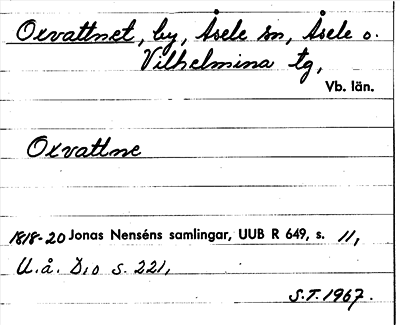 Oxvattnet, by, Åsele sn, Åsele o.
Vilhelmina tg,
Vb. län.
Oxvattne
1818-20 Jonas Nenséns samlingar, UUB R 649, s. 11,
U.å. D:o s. 221,
S.T. 1967.